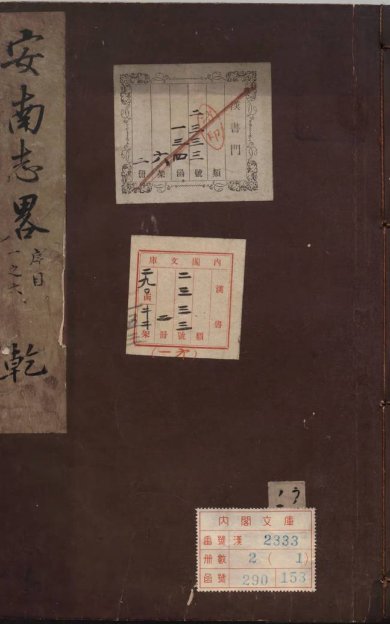 安南志畧
序目
一之六
乾
漢書門
二三三三
一三四
六
二
類
號
函
架
冊
內閣文庫
漢書
二三三三
二
二九〇
類
號
冊
函
架
內閣文庫
番號 漢 2333
冊數 2 ( 1)
函號 290 153